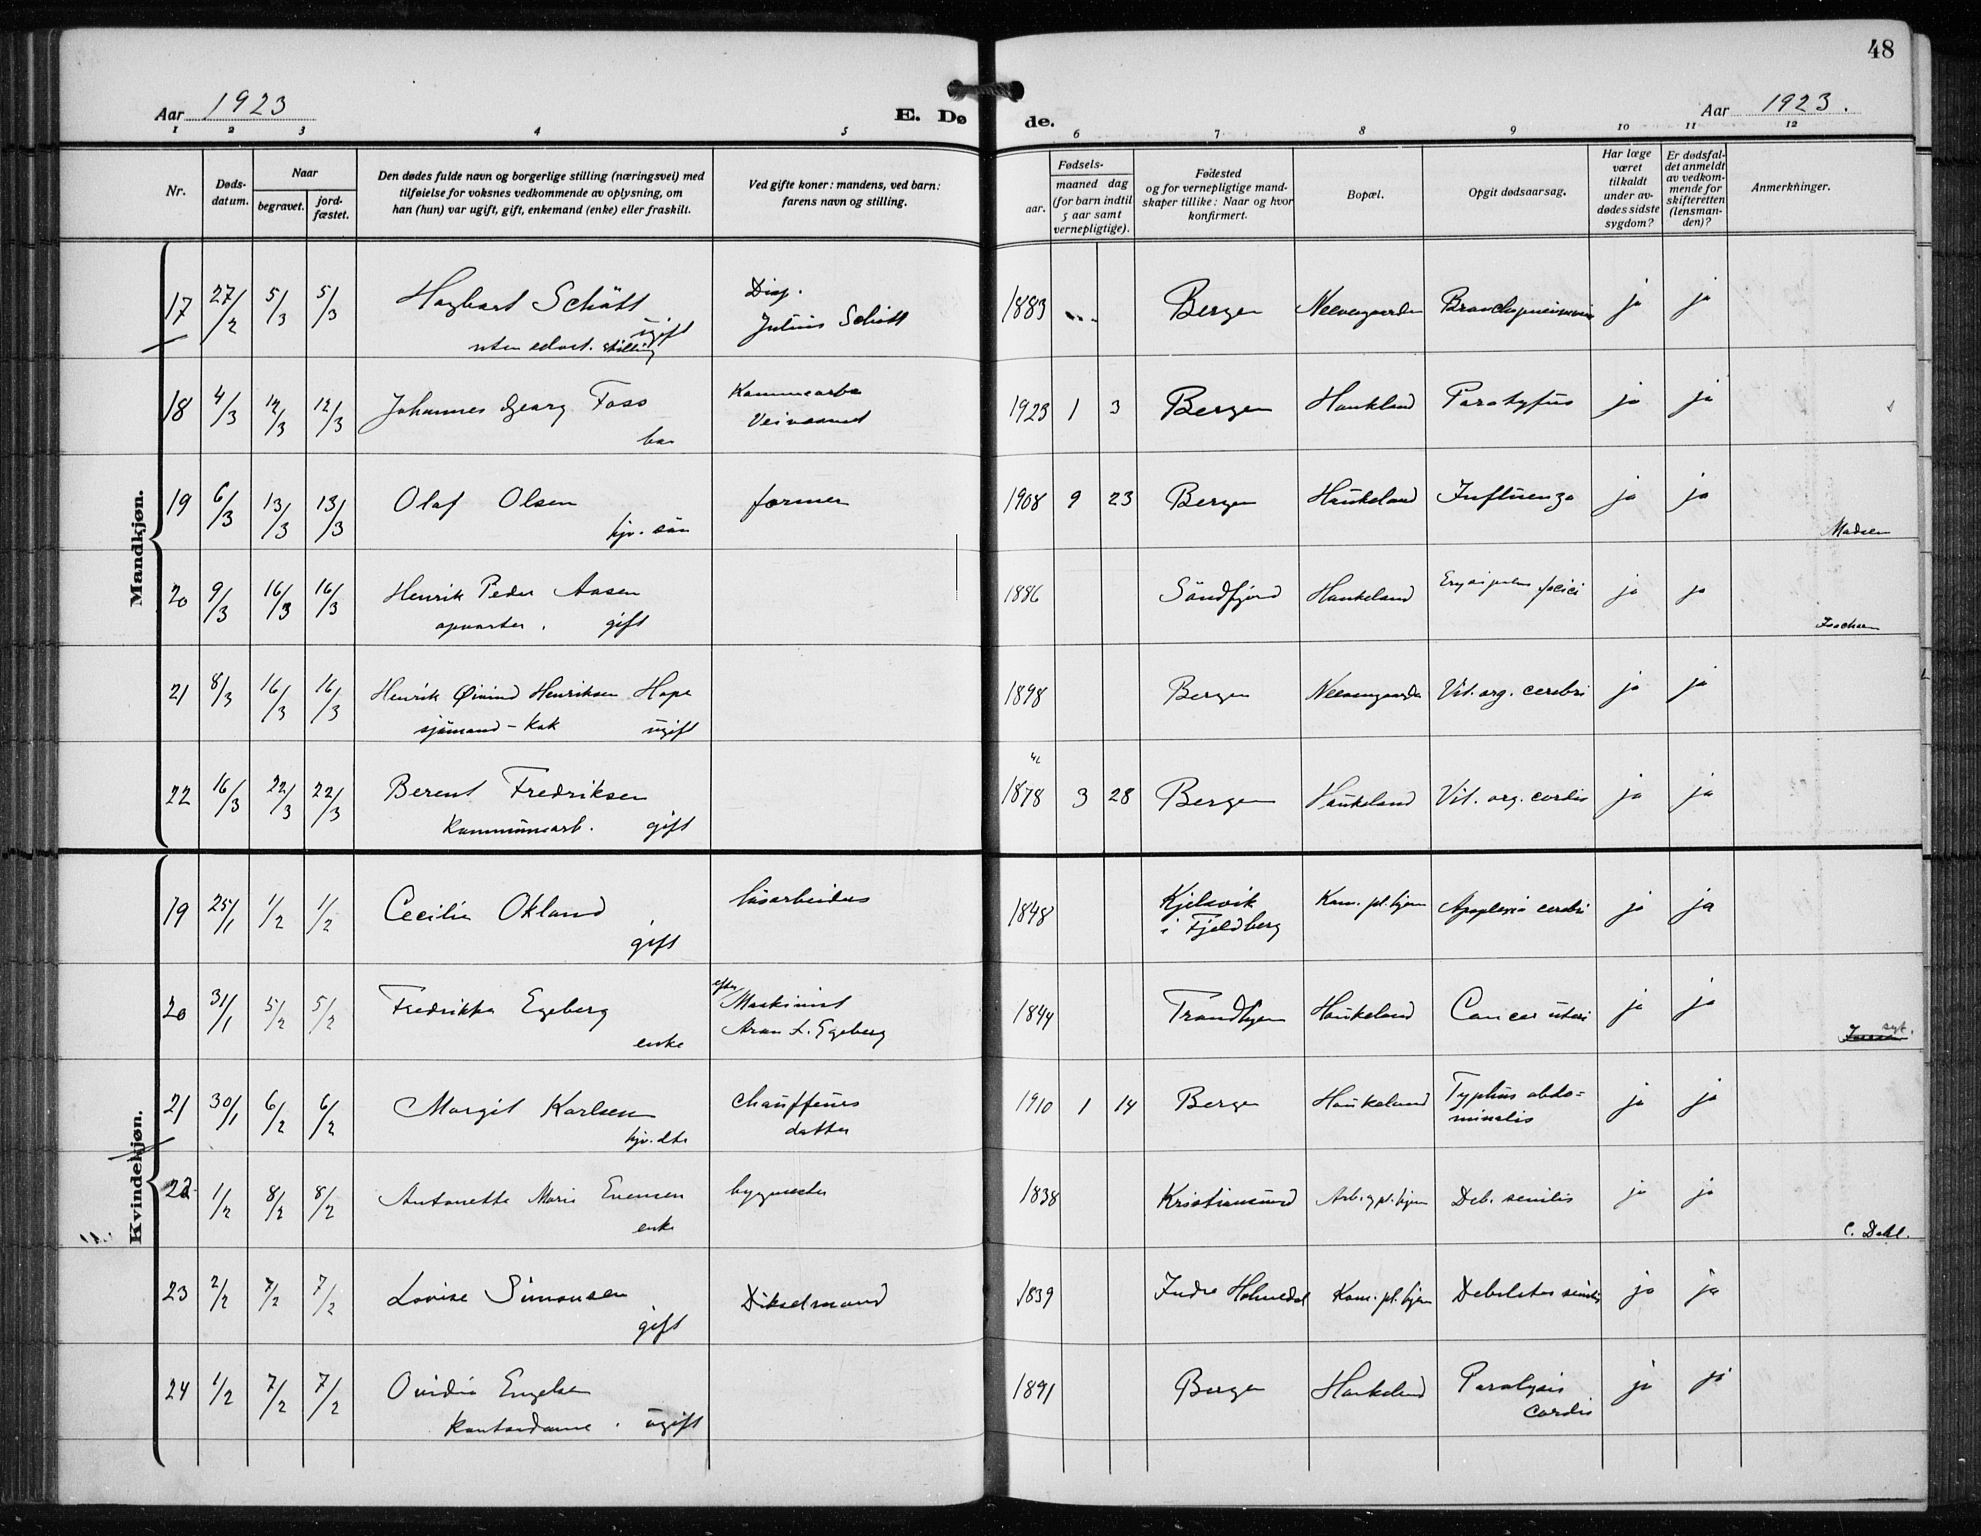 48
Aar 1923
E. Dø de.
Aar 1923.
1 2 3 4 5 6 7 8 9 10 11 12
Nr.
Døds-
datum.
Naar
begravet.
jord-
fæstet.
Den dødes fulde navn og borgerlige stilling (næringsvei) med
tilføielse for voksnes vedkommende av oplysning, om
han (hun) var ugift, gift, enkemand (enke) eller fraskilt.
Ved gifte koner: mandens, ved barn:
farens navn og stilling.
Fødsels-
aar.
maaned dag
(for barn indtil
5 aar samt
vernepligtige).
Fødested
og for vernepligtige mand-
skaper tillike: Naar og hvor
konfirmert.
Bopæl.
Opgit dødsaarsag.
Har læge
været
tilkaldt
under av-
dødes sidste
sygdom?
Er dødsfal-
det anmeldt
av vedkom-
mende for
skifteretten
(lensman-
den)?
Anmerkninger.
Mandkjøn.
17 27/2 5/3 5/3 Hagbart Schött Disp. 1883 Bergen Neevengaarden Bronchopneumoni ja ja
ugift Julius Schött
uten stilling
18 4/3 12/3 12/3 Johannes Georg Foss 1923 1 3 Bergen Haukeland Paratyfus ja ja
19 6/3 13/3 13/3 Olaf Olsen former 1908 9 23 Bergen Haukeland Influenza ja ja
hjv. sön Madsen
20 9/3 16/3 16/3 Henrik Peder Aasen 1886 Söndfjord Haukeland Erysipelas faciei ja ja
opvarter. gift Isachsen
21 8/3 16/3 16/3 Henrik Øivind Henriksen Hope 1898 Bergen Neevengaarden Vit. org. cerebri ja ja
sjömand - kok ugift
22 16/3 22/3 22/3 Berent Fredriksen 1878 3 28 Bergen Haukeland Vit. org. cordis ja ja
kommunearb. gift
Kvindekjøn.
19 25/1 1/2 1/2 Cecilie Okland løsarbeider 1848 Kjelsvik Kom. pl. hjem Apoplexia cerebri ja ja
gift i Fjeldberg
20 31/1 5/2 5/2 Fredrikka Egeberg efter Maskinist 1844 Trondhjem Haukeland Cancer uteri ja ja
enke Aron L. Egeberg
21 30/1 6/2 6/2 Margit Karlsen chauffeurs 1910 1 14 Bergen Haukeland Typhus abdo=
hjv. dtr datter minalis ja ja
22 1/2 8/2 8/2 Antonette Marie Evensen bygmester 1838 Kristiansund Arb. og pl. hjem Deb. senilis ja ja
enke C. Dahl.
23 2/2 7/2 7/2 Lovise Simonsen Dikselmand 1839 Indre Holmedal Kom. pl. hjem Debilitas senilis ja ja
gift
24 1/2 7/2 7/2 Ovidia Engelsen 1891 Bergen Haukeland Paralysis ja ja
kontordame. ugift cordis